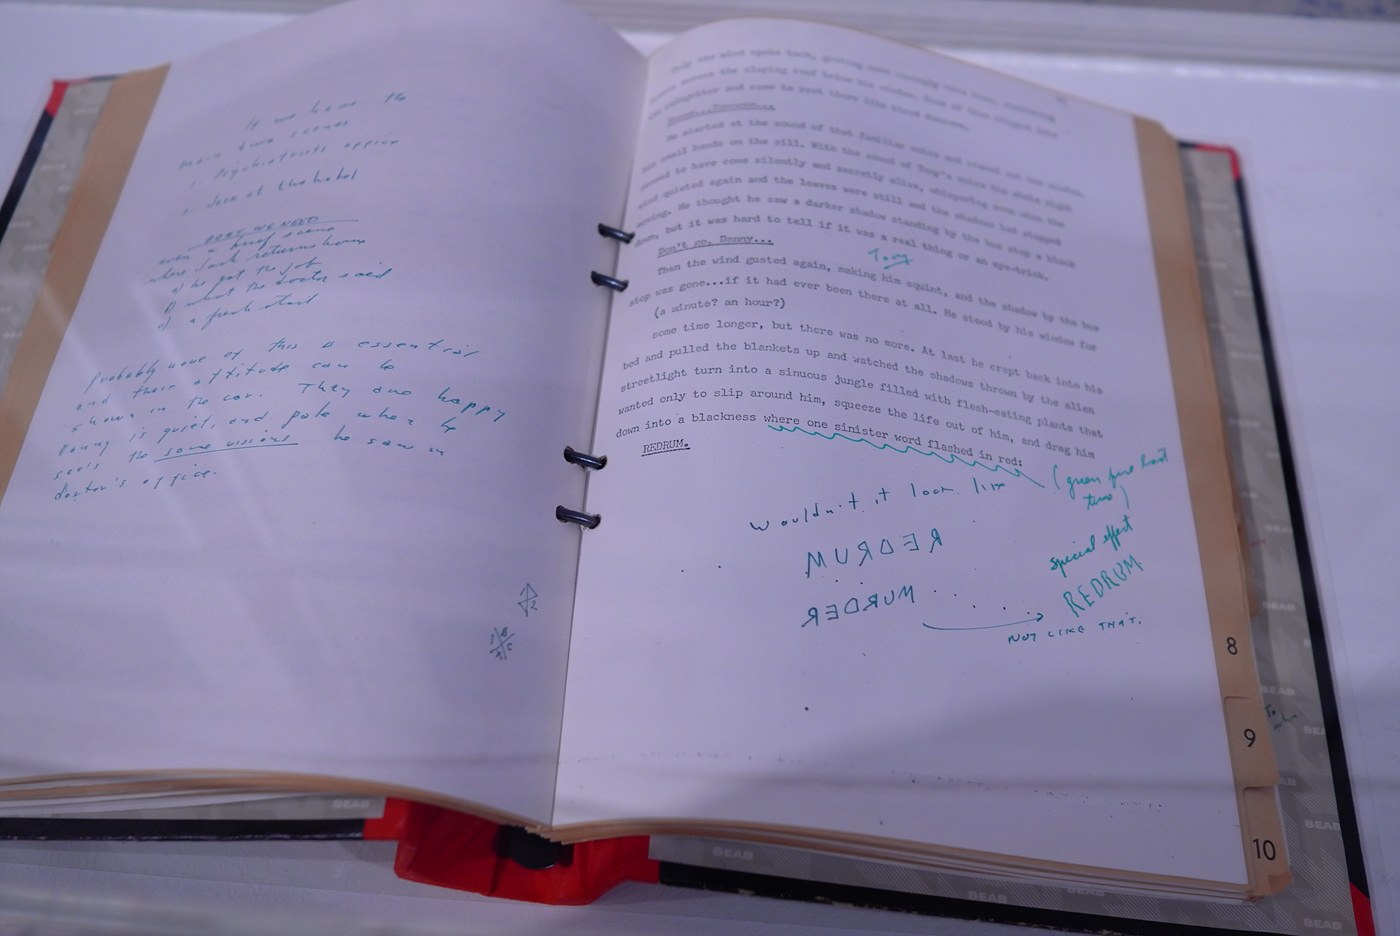 If we have the
main two scenes
1. Psychiatrists office
2. Jack at the hotel
DONT WE NEED
even a brief scene
where Jack returns home
a) he got the job
b) what the doctor said
c) a fresh start
Probably none of this is essential
and their attitude can be
shown in the car. They are happy
Danny is quiet, and pale when he
see's the same visions he saw in
doctor's office.
2
Only the wind spoke back, gusting more
across the sloping roof below his window. Some of them slipped into
the raingutter and came to rest there like tired dancers.
Danny...Dannnee...
He started at the sound of that familiar voice and craned out the window,
his small hands on the sill. With the sound of Tony's voice the whole night
seemed to have come silently and secretly alive, whispering even when the
wind quieted again and the leaves were still and the shadows had stopped
moving. He thought he saw a darker shadow standing by the bus stop a block
down, but it was hard to tell if it was a real thing or an eye-trick.
Don't go, Danny...
Tony
Then the wind gusted again, making him squint, and the shadow by the bus
stop was gone...if it had ever been there at all. He stood by his window for
(a minute? an hour?)
some time longer, but there was no more. At last he crept back into his
bed and pulled the blankets up and watched the shadows thrown by the alien
streetlight turn into a sinuous jungle filled with flesh-eating plants that
wanted only to slip around him, squeeze the life out of him, and drag him
down into a blackness where one sinister word flashed in red:
REDRUM.
(green first
time)
Wouldn't it look like
special effect
MURDER
REDRUM
REDRUM
NOT LIKE THAT.
8
9
10
SEAB
SEAB
SEAB
SEAB
SEAB
SEAB